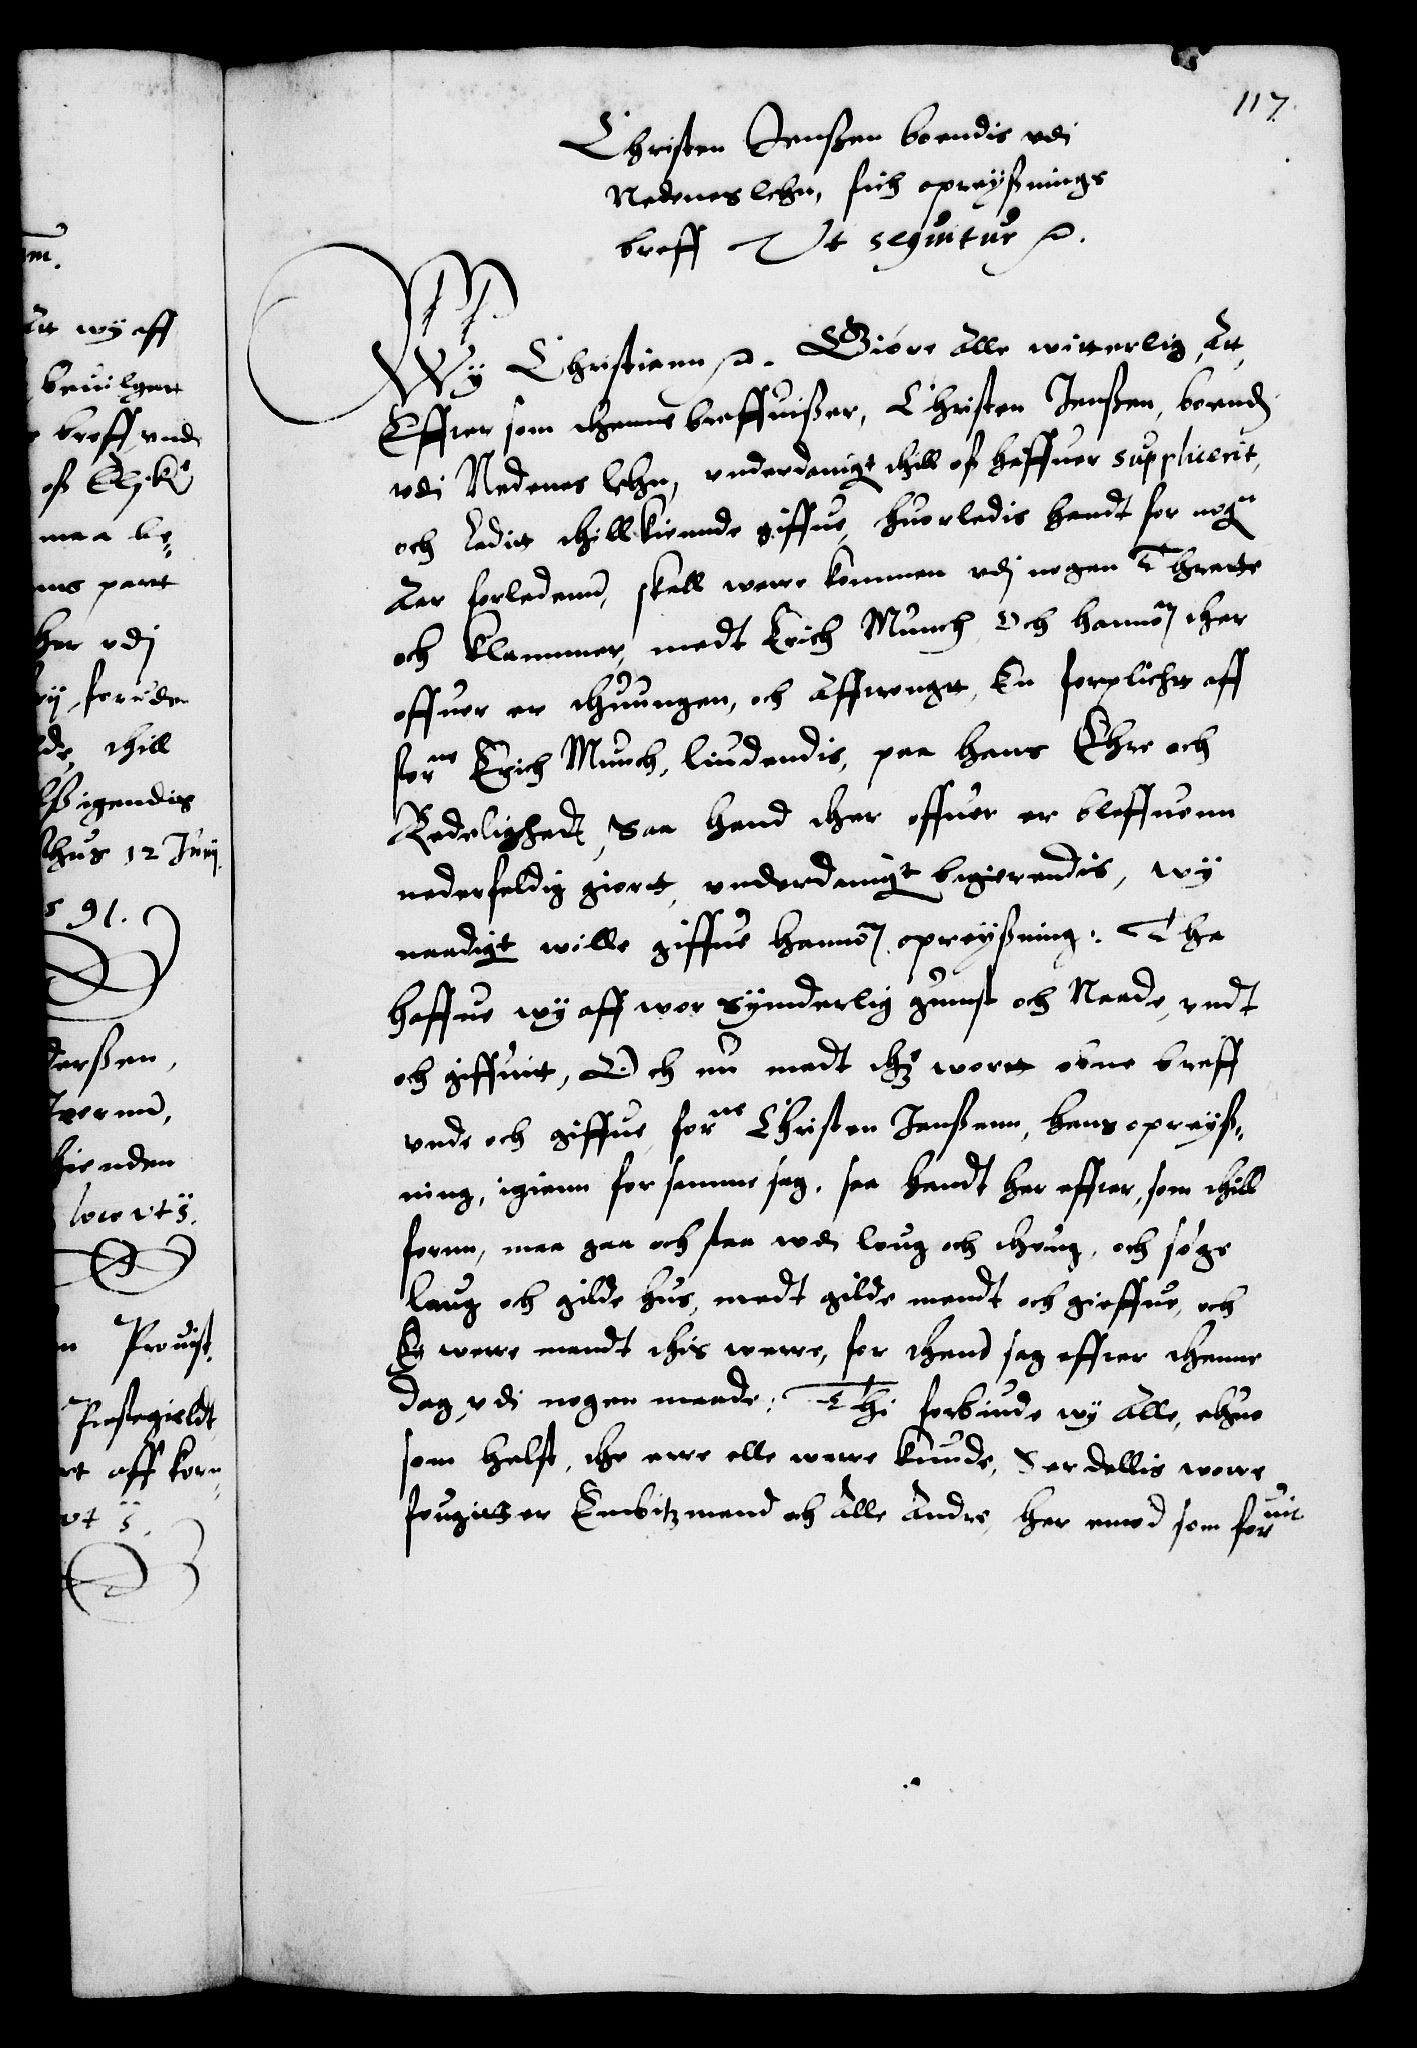 117.
Christen Jenßen boendis vdi
Nedenes lehn, fich opreÿßnings
breff Vt sequitur
Wÿ Christiann Giöre alle witterlig, Att,
Effter som thenne breffuißer, Christen Jenßen, boend
vdi Nedenes lehn, vnderdanigt thill oß haffuer supplicerit,
och ladit thillkiennde giffue, huorledis handt for nogn
Aar forledenn, skall were kommen vdj nogen Thrætte
och klammer, medt Erich Munch, Och hannom ther
offuer er thuungen, och afftrengtt, En forplicht aff
forne Erich Munch, liudendis, paa hans Ehre och
Redelighedt, Saa hand ther offuer er bleffuenn
nederfeldig giortt, vnderdanigt begierendis, wÿ
naadigt wille giffue hannom opreÿßning: Tha
haffue wÿ aff wor sÿnderlig gunst och Naade, vndt
och giffuitt, Och nu medt thz wortt obne breff
vnde och giffue forne Christen Jenßenn, hans opreÿß-
ning, igienn for samme sag, saa handt her effter, som thill
fornn, maa gaa och staa vdi loug och thoug, och søge
laug och gilde hus, medt gilde mendt och gieffue, och
Ey were mendt this were, for thend sag effter thenne
dag, vdi nogen maade: Thi forbiude wÿ alle, ehuo
som helst, the ere elle were kunde, Serdellis wore
fougitter Embitzmend och alle Andre, her emod som foruit
m.
Att wÿ aff
beuilgett
breff, vnde
oß Elsk:
maa be-
ns partt
her vdj
foruden
thill
igendis
hus 12 Junij
91.
derßen,
hienden
loco vt s.
Prouist.
Prestegieldt
aff korn
vt s.